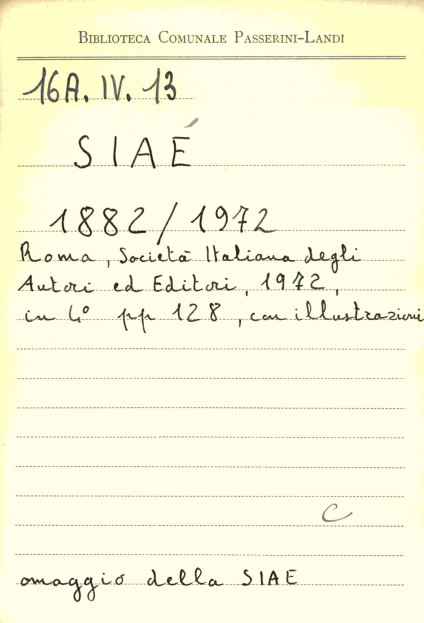 BIBLIOTECA COMUNALE PASSERINI-LANDI
16A. IV. 13
SIAE
1882/1972
Roma, Società Italiana degli
Autori ed Editori, 1972,
in 4° pp 128, con illustrazioni
C
omaggio della SIAE